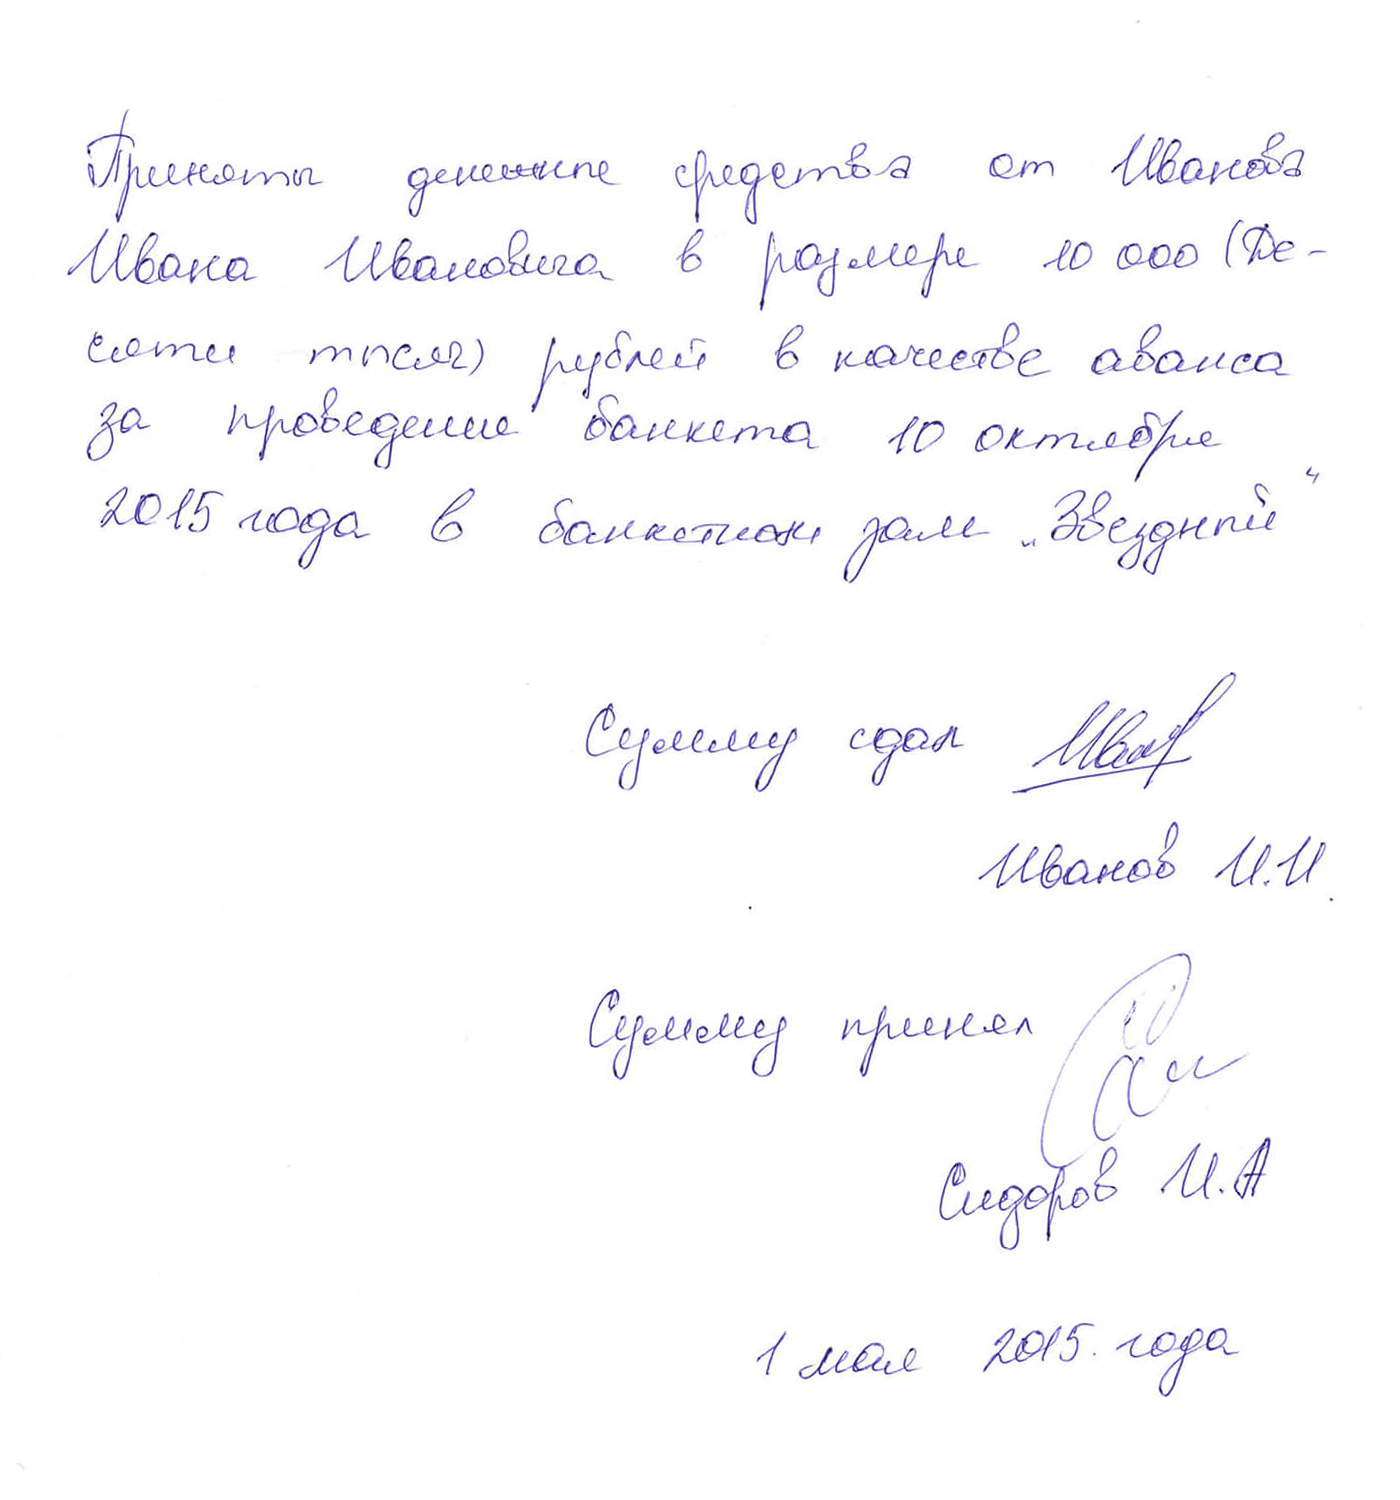 Приняты денежные средства от Иванова
Ивана Ивановича в размере 10 000 (Де-
сяти тысяч) рублей в качестве аванса
за проведение банкета 10 октября
2015 года в банкетном зале „Звездный“
Сумму сдал
Иванов И.И.
Сумму принял
Сидоров И.А
1 мая 2015 года